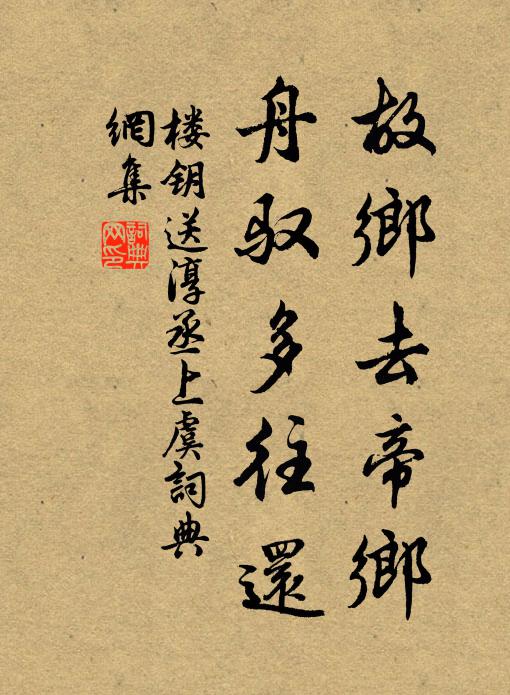 故鄉去帝鄉
舟馭多往還
楼钥送淳丞上虞詞典
網集
詞典網印